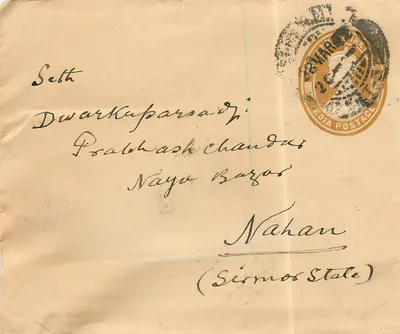 Seth
Dwarkaparsadji
Prabhash Chandar
Naya Bazar
Nahan
(Sirmor State)
8 MAR
INDIA POSTAGE